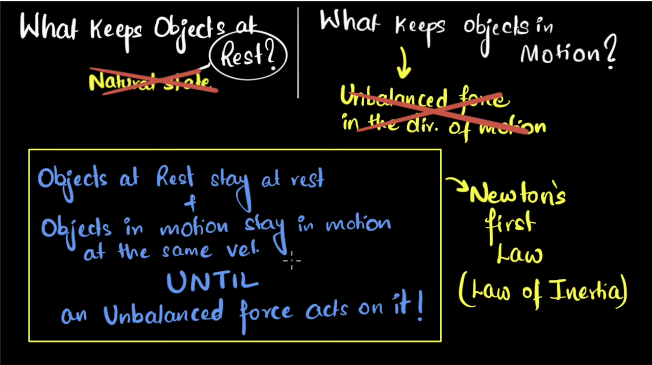 What Keeps Objects at
Rest?
Natural state.
What Keeps objects in
Motion?
Unbalanced force
in the dir. of motion
Objects at Rest stay at rest
+
Objects in motion stay in motion
at the same vel.
UNTIL
an Unbalanced force acts on it!
Newton's
first
Law
(Law of Inertia)